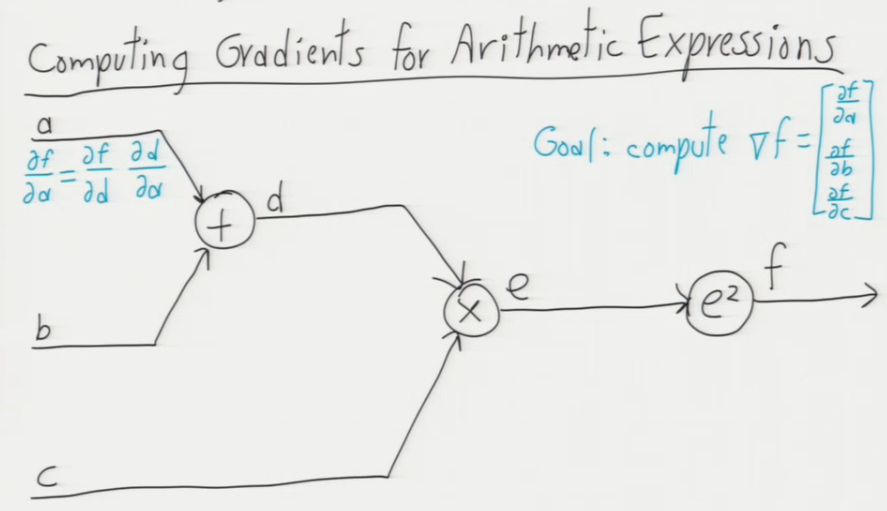 Computing Gradients for Arithmetic Expressions
Goal: compute ∇f = [∂f/∂a ∂f/∂b ∂f/∂c]
a
∂f/∂a = ∂f/∂d ∂d/∂a
+
d
b
×
e
e²
f
c